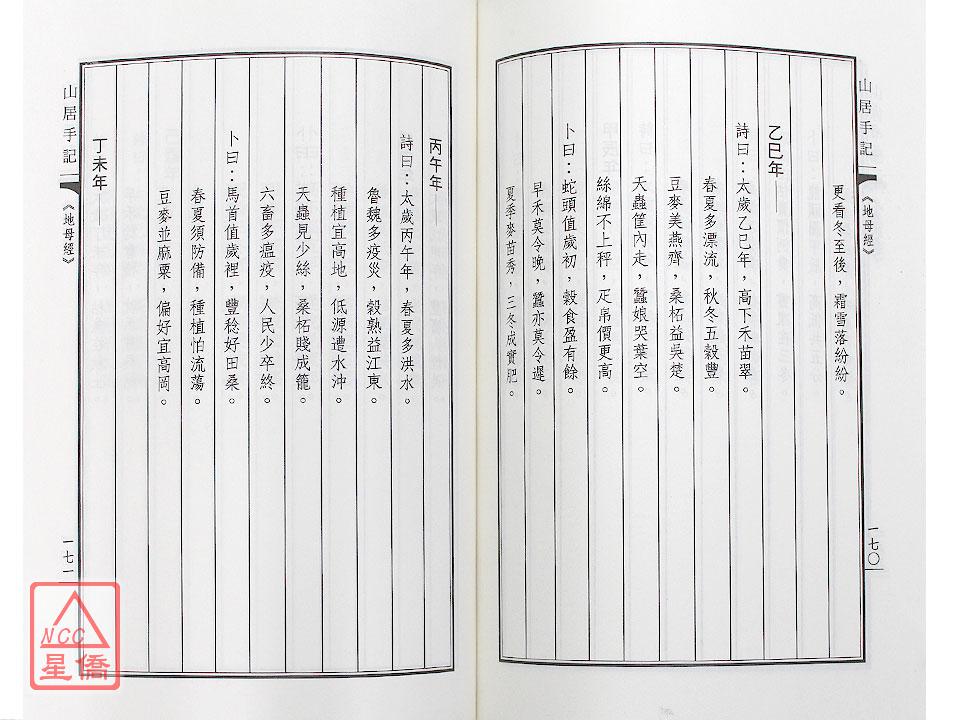 山居手記
《地母經》
一七〇
更看冬至後，霜雪落紛紛。
乙巳年——
詩曰：太歲乙巳年，高下禾苗翠。
春夏多漂流，秋冬五穀豐。
豆麥美燕齊，桑柘益吳楚。
天蟲筐內走，蠶娘哭葉空。
絲綿不上秤，疋帛價更高。
卜曰：蛇頭值歲初，穀食盈有餘。
早禾莫令晚，蠶亦莫令遲。
夏季麥苗秀，三冬成實肥。
丙午年——
詩曰：太歲丙午年，春夏多洪水。
魯魏多疫災，穀熟益江東。
種植宜高地，低源遭水沖。
天蟲見少絲，桑柘賤成籠。
六畜多瘟疫，人民少卒終。
卜曰：馬首值歲裡，豐稔好田桑。
春夏須防備，種植怕流蕩。
豆麥並麻粟，偏好宜高岡。
丁未年——
山居手記
《地母經》
一七一
NCC
星僑